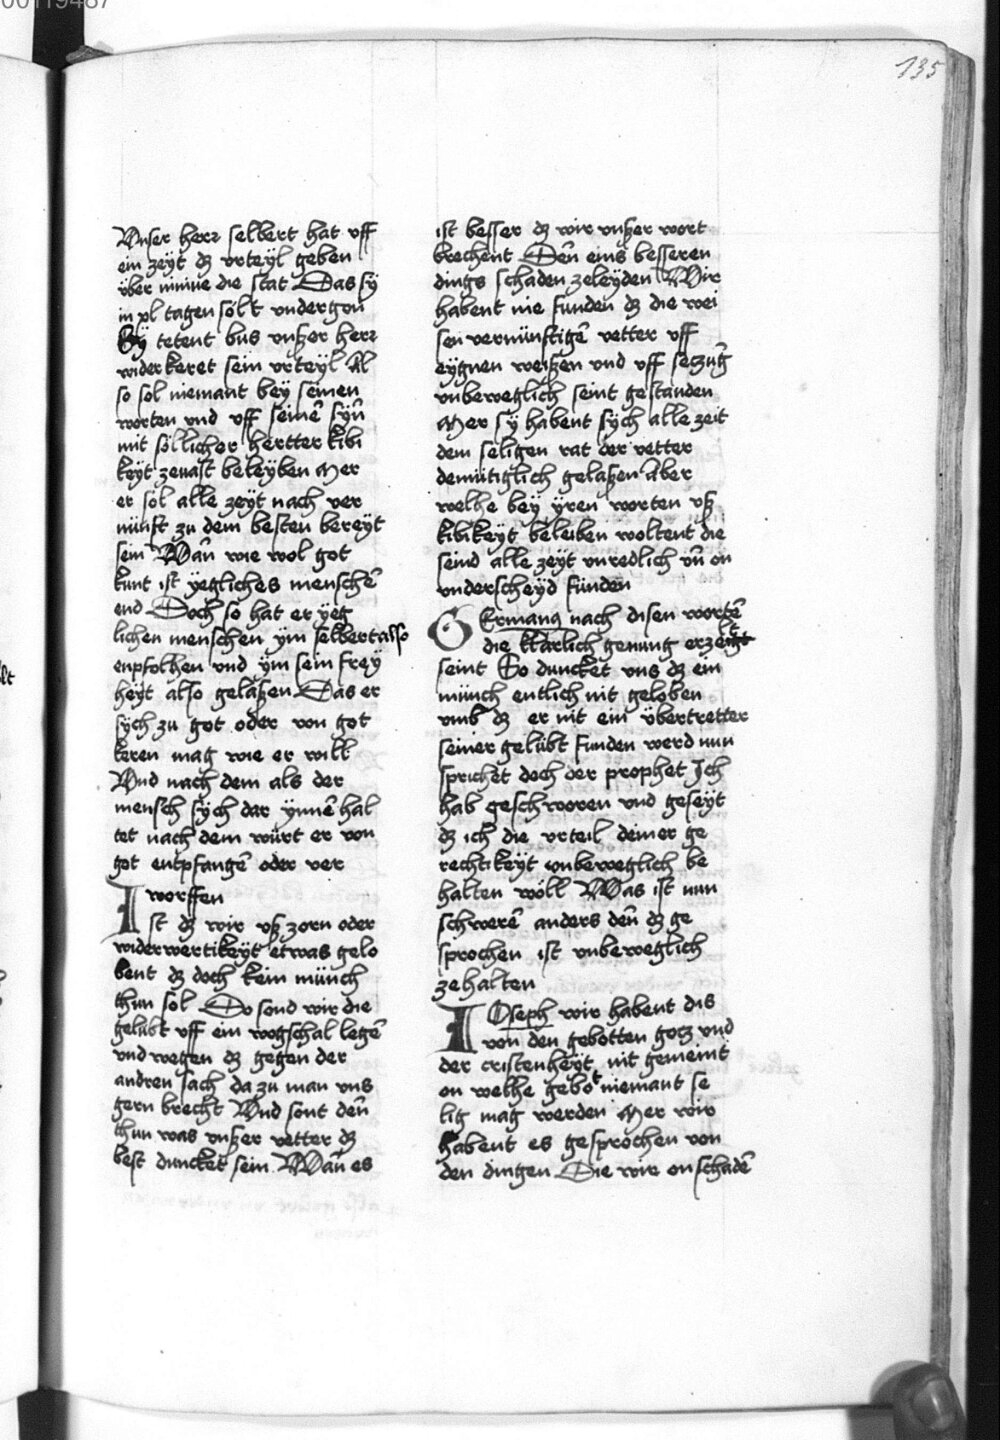 00119487
135
Vnser herr selbert hat vff
ein zeyt dz vrteyl geben
über ninive die stat Das sy
in xl tagen sölt vndergon
Sy tetent bus vnßer herr
widerkeret sein vrteyl Al
so sol niemant bey seinen
worten vnd vff seinē syn̄
mit söllicher hertter kibi
keyt zevast beleyben Mer
er sol alle zeyt nach ver
nünft zu dem besten bereyt
sein Wan̄ wie wol got
kunt ist yegliches menschē
end Doch so hat er yeg
lichen menschen ym selbert also
enpfolhen vnd ym sein frey
heyt also gelaßen Das er
sych zu got oder von got
keren mag wie er will
Vnd nach dem als der
mensch sych dar ynnē hal
tet nach dem würt er von
got entpfangē oder ver
worffen
Ist dz wir vß zorn oder
widerwertikeyt etwas gelo
bent dz doch kein münch
thun sol So sond wir die
gelübt vff ein wogschal legē
vnd wegen dz gegen der
andren sach da zu man vns
gern brecht Vnd sont den̄
thun was vnßer vetter dz
best duncket sein Wan̄ es
ist besser dz wir vnßer wort
brechent Den̄ eins besseren
dings schaden zeleyden Wir
habent nie funden dz die wei
sen vermünftigē vetter vff
eygnen weißen vnd vff seczūg
vnbeweglich seint gestanden
Mer sy habent sych alle zeit
dem seligen rat der vetter
demütiglich gelaßen Aber
welhe bey yren worten vß
kibikeyt beleiben woltent die
seind alle zeyt vnredlich vn̄ on
vnderscheyd funden
Germanus nach disen wortē
die klarlich genung erzeigt
seint So duncket vns dz ein
münch entlich nit geloben
vmb dz er nit ein übertretter
seiner gelübt funden werd nun
sprichet doch der prophet Ich
hab geschworen vnd geseyt
dz ich die vrteil deiner ge
rechtikeyt vnbeweglich be
halten wöll Was ist nun
schwerē anders den̄ dz ge
sprochen ist vnbeweglich
zehalten
Ioseph wir habent dis
von den gebotten gocz vnd
der cristenheyt nit gemeint
on welhe gebot niemant se
lig mag werden Mer wir
habent es gesprochen von
den dingen Die wir on schadē